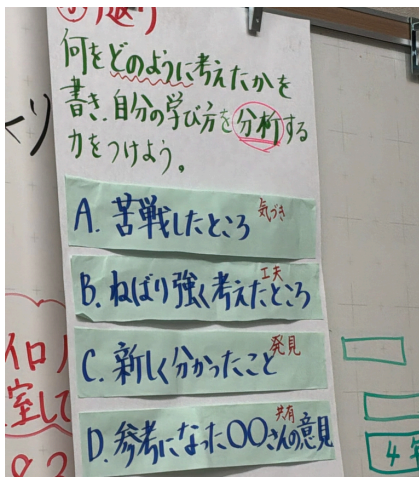 り返り
何をどのように考えたかを
書き、自分の学び方を分析する
力をつけよう。
A. 苦戦したところ 気づき
B. ねばり強く考えたところ 工夫
C. 新しく分かったこと 発見
D. 参考になった〇〇さんの意見 共有
イロ
室して
4年